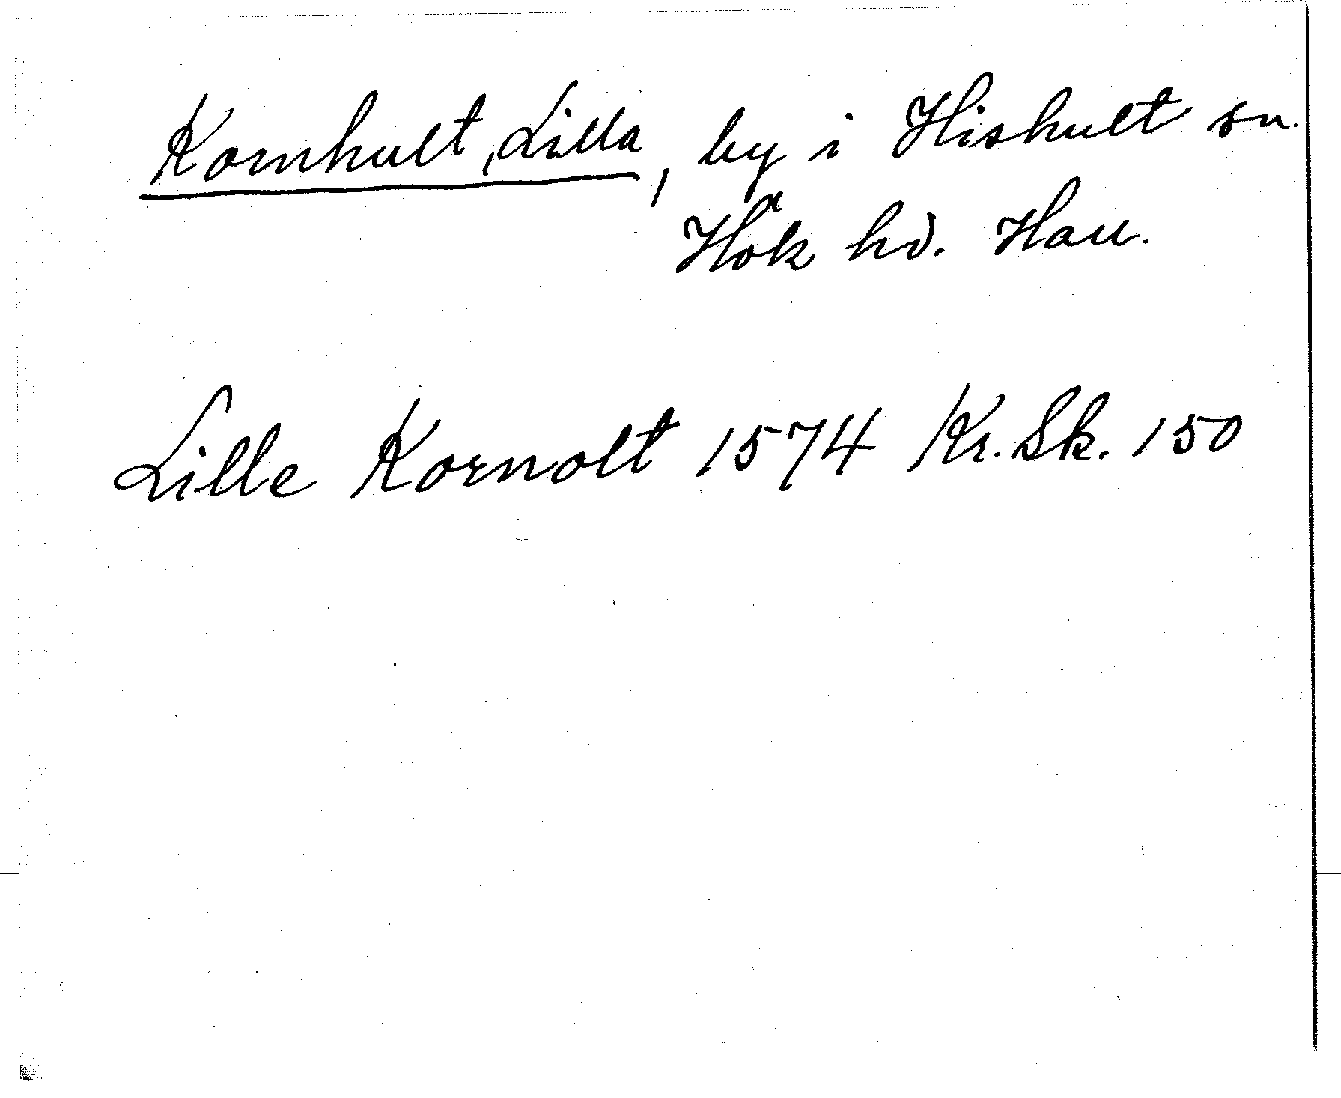 Kornhult, Lilla, by i Hishult sn.
Hök hd. Hall.
Lille Kornolt 1574 Kr. Sk. 150